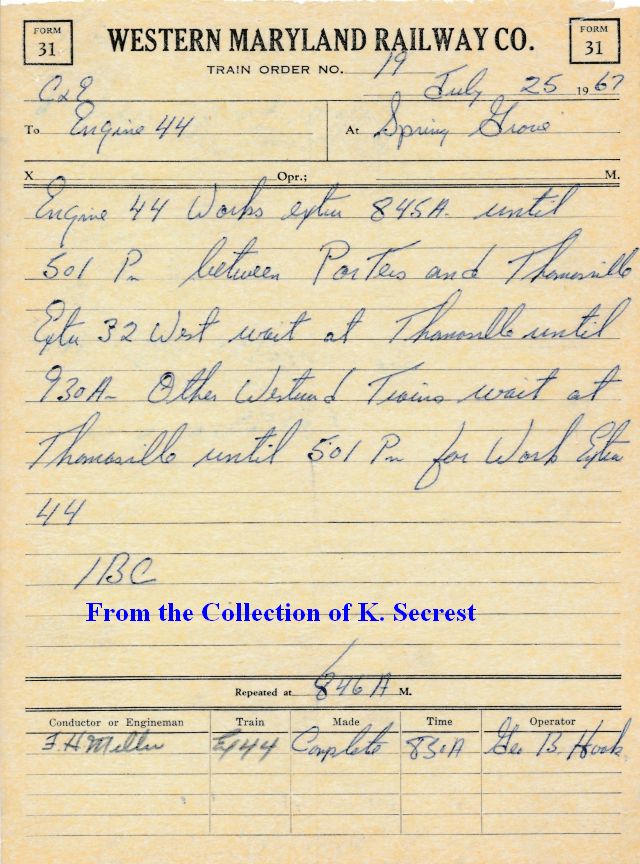 FORM 31
WESTERN MARYLAND RAILWAY CO.
FORM 31
TRAIN ORDER NO. 19
July 25 1967
C&E
To Engine 44 At Spring Grove
X Opr.; M.
Engine 44 Works extra 845A. until
501 Pm between Porters and Thomasville
Extra 32 West wait at Thomasville until
930A- Other Westward Trains wait at
Thomasville until 501 Pm for Work Extra
44
IBC
From the Collection of K. Secrest
Repeated at 846 A M.
Conductor or Engineman Train Made Time Operator
F.H. Miller Ex 44 Complete 830A Geo B. Hook